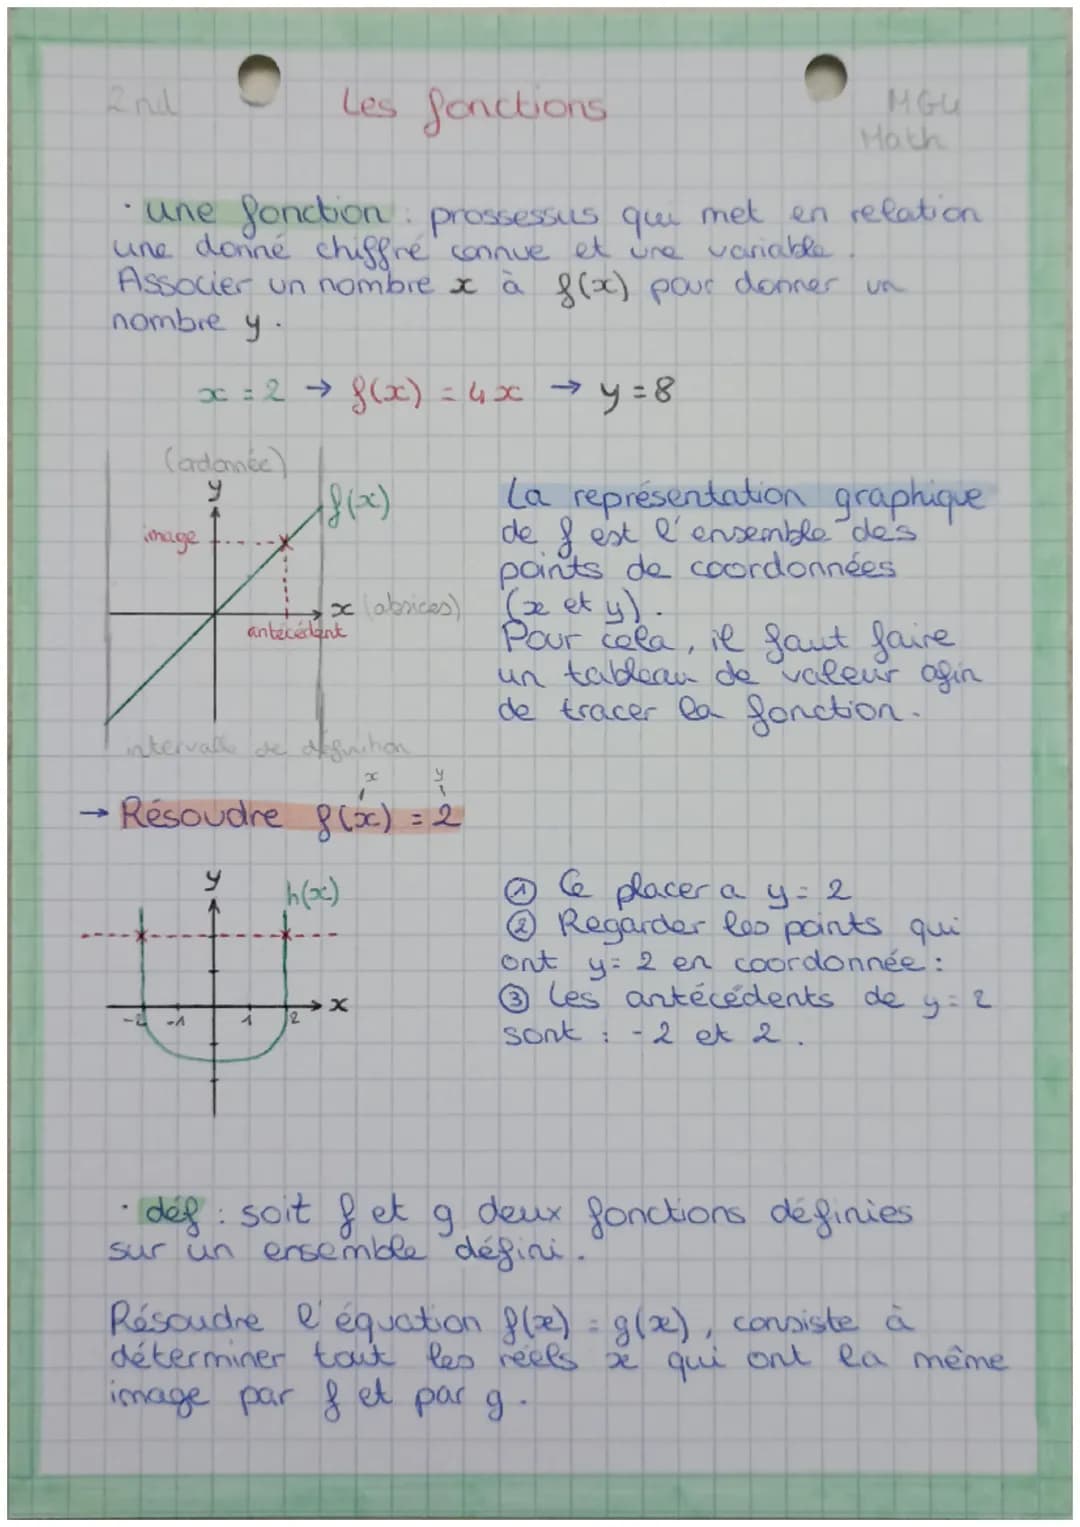 2nd
Les fonctions
MG4
Math
· une fonction : prossessus qui met en relation
une donné chiffré connue et une variable.
Associer un nombre x à f(x) pour donner un
nombre y.
x = 2 → f(x) = 4x → y = 8
(ordonnée)
y
f(x)
image
x (absices)
antécédent
intervalle de définition
La représentation graphique
de f est l'ensemble des
points de coordonnées
(x et y).
Pour cela, il faut faire
un tableau de valeur afin
de tracer la fonction.
x y
→ Résoudre f(x) = 2
y
h(x)
x
-2 -1 1 2
① Ce placer a y = 2
② Regarder les points qui
ont y = 2 en coordonnée :
③ Les antécédents de y = 2
sont : -2 et 2.
· déf : soit f et g deux fonctions définies
sur un ensemble défini.
Résoudre l'équation f(x) = g(x), consiste à
déterminer tout les réels x qui ont la même
image par f et par g.